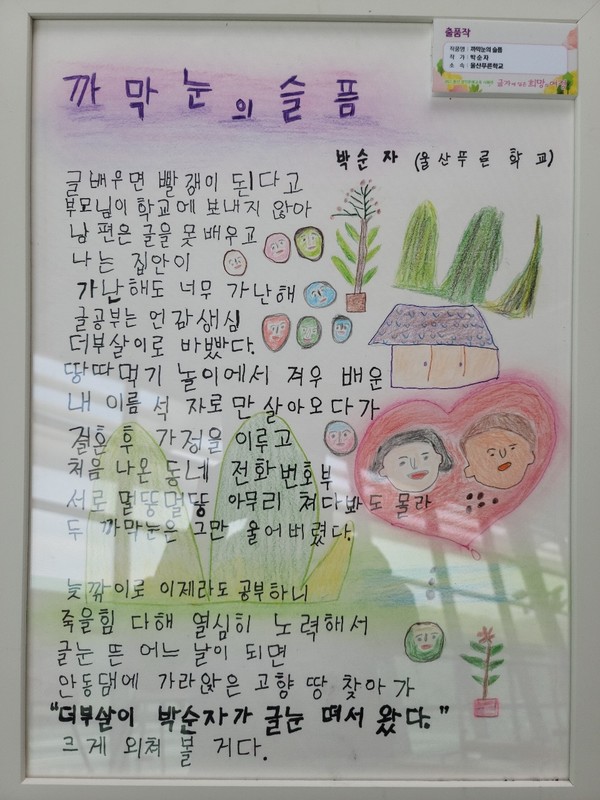 출품작
작품명 : 까막눈의 슬픔
작 가 : 박순자
소 속 : 울산푸른학교
글자에 담은 희망의
까막눈의 슬픔
박순자 (울산푸른학교)
글 배우면 빨갱이 된다고
부모님이 학교에 보내지 않아
남편은 글을 못 배우고
나는 집안이
가난해도 너무 가난해
글공부는 언감생심
더부살이로 바빴다.
땅따먹기 놀이에서 겨우 배운
내 이름 석 자로만 살아오다가
결혼 후 가정을 이루고
처음 나온 동네 전화번호부
서로 멀뚱멀뚱 아무리 쳐다봐도 몰라
두 까막눈은 그만 울어버렸다.
늦깎이로 이제라도 공부하니
죽을힘 다해 열심히 노력해서
글눈 뜬 어느 날이 되면
안동댐에 가라앉은 고향 땅 찾아가
"더부살이 박순자가 글눈 떠서 왔다."
크게 외쳐 볼 거다.